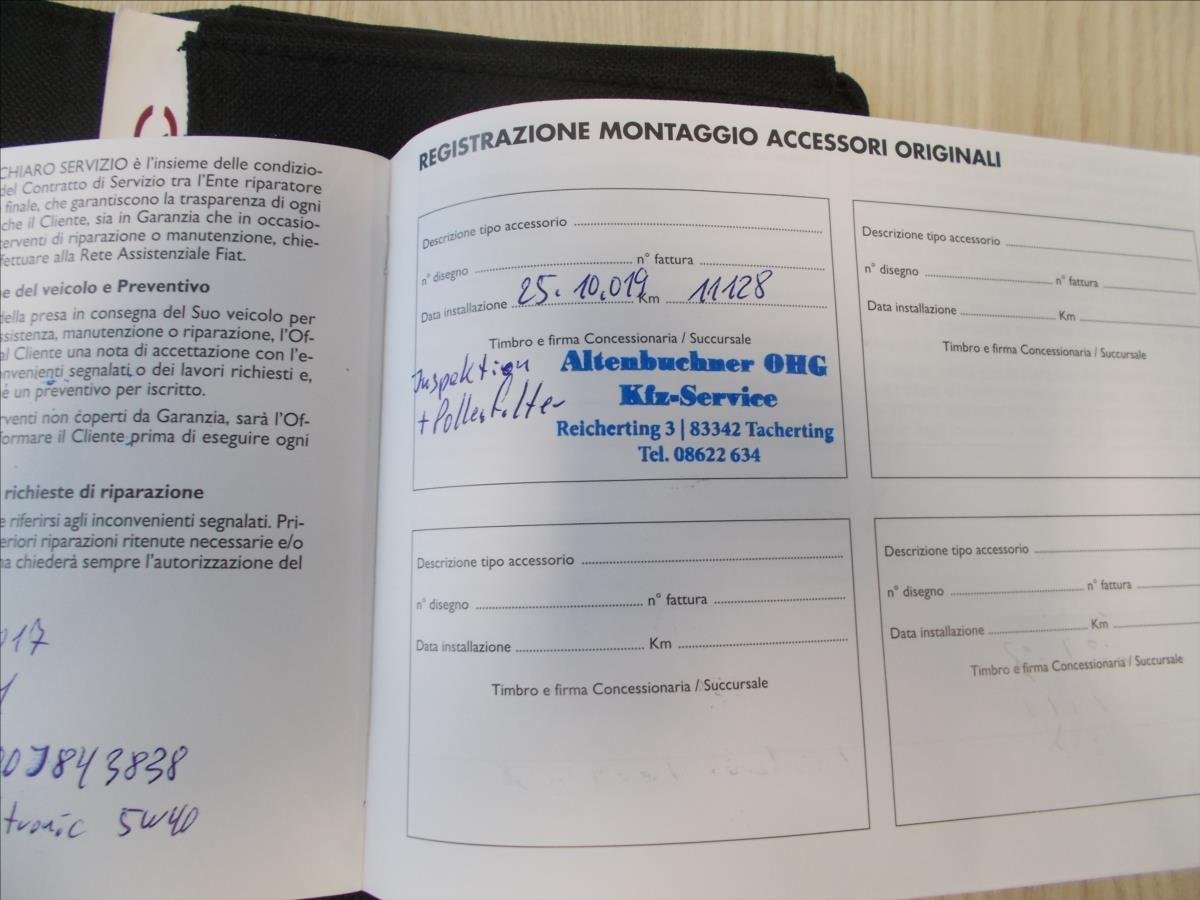 CHIARO SERVIZIO è l'insieme delle condizio-
del Contratto di Servizio tra l'Ente riparatore
finale, che garantiscono la trasparenza di ogni
che il Cliente, sia in Garanzia che in occasio-
erventi di riparazione o manutenzione, chie-
fettuare alla Rete Assistenziale Fiat.
e del veicolo e Preventivo
della presa in consegna del Suo veicolo per
ssistenza, manutenzione o riparazione, l'Of-
al Cliente una nota di accettazione con l'e-
nvenienti segnalati o dei lavori richiesti e,
é un preventivo per iscritto.
rventi non coperti da Garanzia, sarà l'Of-
formare il Cliente prima di eseguire ogni
richieste di riparazione
e riferirsi agli inconvenienti segnalati. Pri-
eriori riparazioni ritenute necessarie e/o
na chiederà sempre l'autorizzazione del
017
843838
tronic 5W40
REGISTRAZIONE MONTAGGIO ACCESSORI ORIGINALI
Descrizione tipo accessorio
n° disegno n° fattura
Data installazione 25.10.019 Km 11128
Timbro e firma Concessionaria / Succursale
Inspektion
+ Pollenfilter
Altenbuchner OHG
Kfz-Service
Reicherting 3 | 83342 Tacherting
Tel. 08622 634
Descrizione tipo accessorio
n° disegno n° fattura
Data installazione Km
Timbro e firma Concessionaria / Succursale
Descrizione tipo accessorio
n° disegno n° fattura
Data installazione Km
Timbro e firma Concessionaria / Succursale
Descrizione tipo accessorio
n° disegno n° fattura
Data installazione Km
Timbro e firma Concessionaria / Succursale